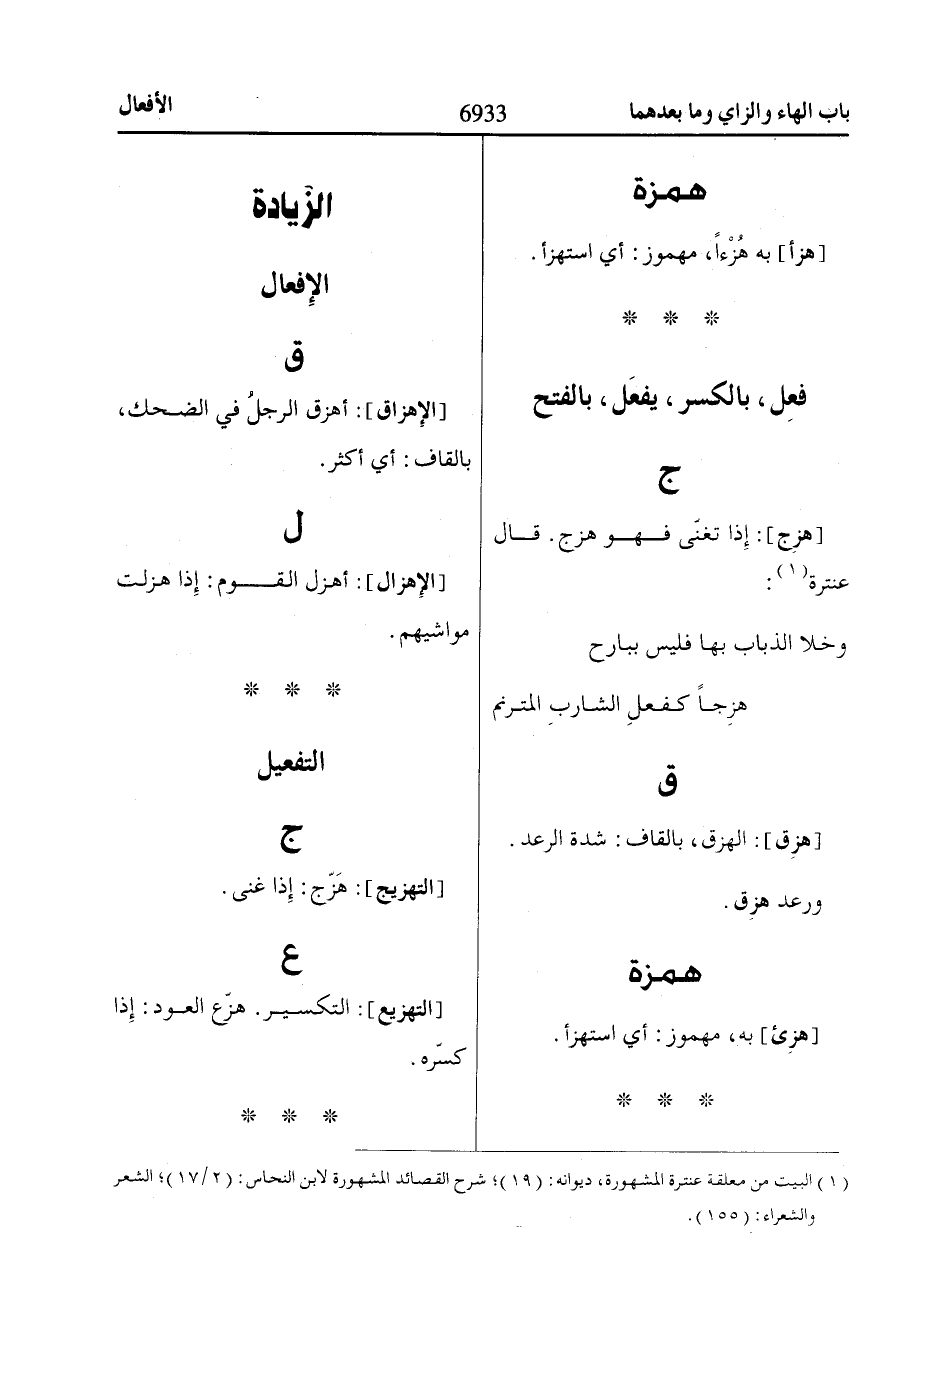 باب الهاء والزاي وما بعدهما 6933 الأفعال
همزة
[هزأ] به هُزْءاً، مهموز: أي استهزأ.
* * *
فعِل، بالكسر، يفعَل، بالفتح
ج
[هزِج]: إذا تغنّى فهو هزج. قال
عنترة(١):
وخلا الذباب بها فليس ببارح
هزِجاً كفعلِ الشاربِ المترنم
ق
[هزِق]: الهزق، بالقاف: شدة الرعد.
ورعد هزِق.
همزة
[هزِئ] به، مهموز: أي استهزأ.
* * *
الزِّيادة
الإِفعال
ق
[الإِهزاق]: أهزق الرجلُ في الضحك،
بالقاف: أي أكثر.
ل
[الإِهزال]: أهزل القوم: إِذا هزلت
مواشيهم.
* * *
التفعيل
ج
[التهزيج]: هَزّج: إِذا غنى.
ع
[التهزيع]: التكسير. هزّع العود: إِذا
كسّره.
* * *
(١) البيت من معلقة عنترة المشهورة، ديوانه: (١٩)؛ شرح القصائد المشهورة لابن النحاس: (١٧/٢)؛ الشعر
والشعراء: (١٥٥).